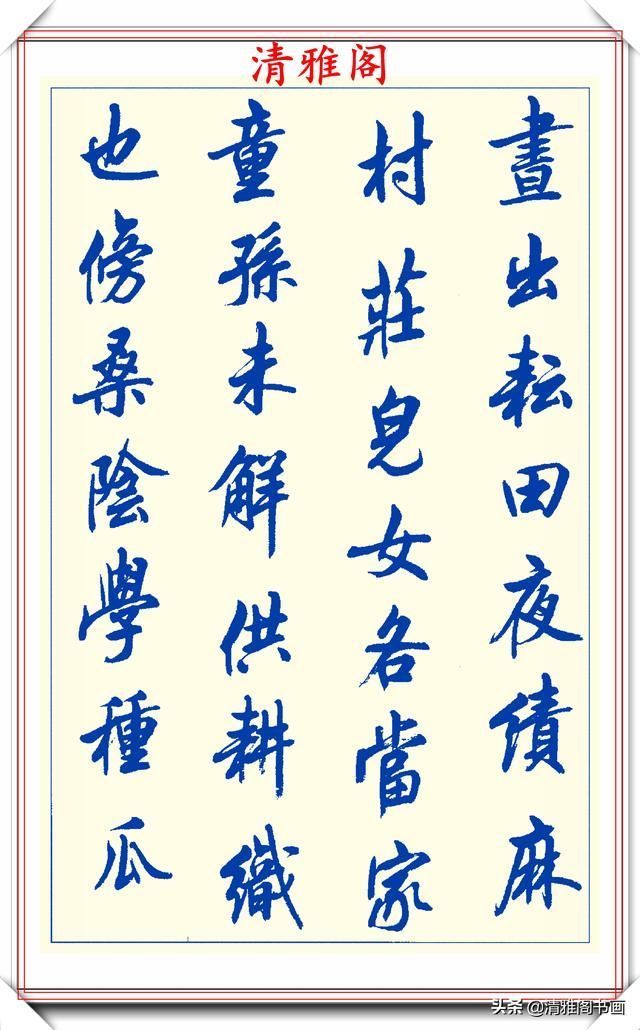 清雅阁
晝出耘田夜績麻
村莊兒女各當家
童孫未解供耕織
也傍桑陰學種瓜
头条@清雅阁书画